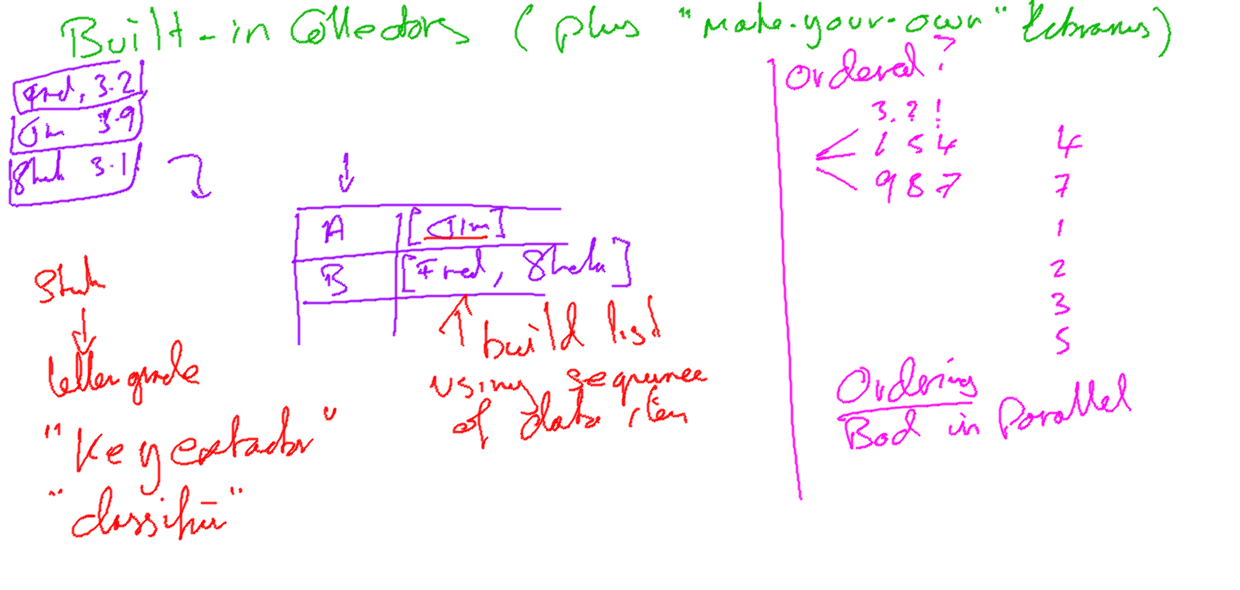 Built-in Collectors (plus "make-your-own" libraries)
Fred, 3.2
Jim 3.9
Sheila 3.1
A [Jim]
B [Fred, Sheila]
build list
using sequence
of data item
letter grade
"Key extractor"
"classifier"
Ordered?
3 . 2 !
< 1 5 4 4
9 8 7 7
1
2
3
5
Ordering
Bad in Parallel